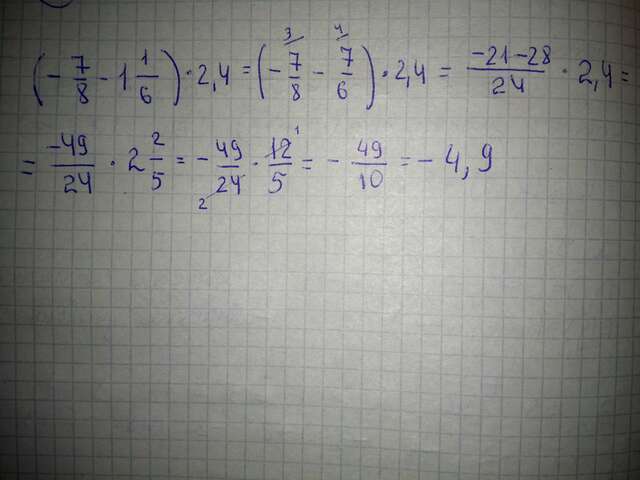 (-7/8 - 1 1/6) · 2,4 = (-7/8 3 - 7/6 4) · 2,4 = -21-28/24 · 2,4 =
= -49/24 · 2 2/5 = - 49/24 2 · 12/5 1 = - 49/10 = - 4,9